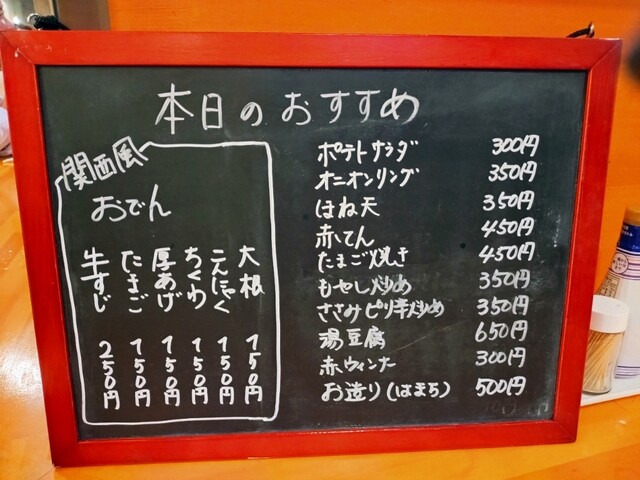 本日のおすすめ
関西風
おでん
大根 150円
こんにゃく 150円
ちくわ 150円
厚あげ 150円
たまご 150円
牛すじ 250円
ポテトサラダ 300円
オニオンリング 350円
はね天 350円
赤てん 450円
たまご焼き 450円
もやし炒め 350円
ささみピリ辛炒め 350円
湯豆腐 650円
赤ウィンナー 300円
お造り(はまち) 500円